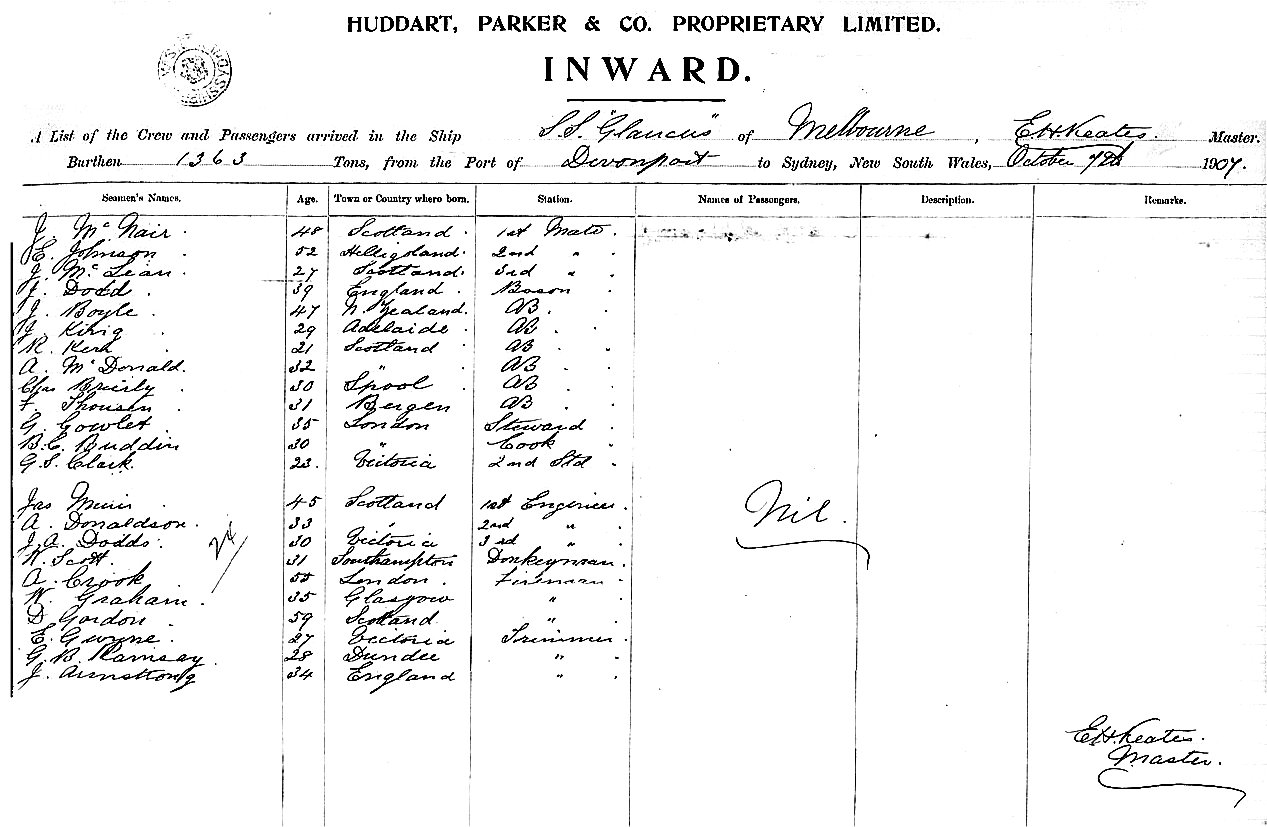 HUDDART, PARKER & CO. PROPRIETARY LIMITED.
INWARD.
A List of the Crew and Passengers arrived in the Ship S.S. "Glaucus" of Melbourne, E.H. Keates. Master.
Burthen 1363 Tons, from the Port of Devonport to Sydney, New South Wales, October 7th 1907.
Seamen's Names. Age. Town or Country where born. Station. Names of Passengers. Description. Remarks.
J. McNair 48 Scotland 1st Mate
E. Johnson 52 Helligoland 2nd "
J. McLean 27 Scotland 3rd "
J. Dodd 39 England Boson
J. Boyle 47 N. Zealand AB
J. 29 Adelaide AB
R. Kerr 21 Scotland AB
A. McDonald 32 " AB
Chas Brierly 30 Lpool AB
F. 31 Bergen AB
G. Gowlet 35 London Steward
B.C. Buddin 30 " Cook
G.S. Clark 23 Victoria 2nd Std
Jas Muir 45 Scotland 1st Engineer
A. Donaldson 33 " 2nd "
J.A. Dodds 30 Victoria 3rd "
W. Scott 31 Southampton Donkeyman
A. Crook 55 London Fireman
W. Graham 35 Glasgow "
D. Gordon 59 Scotland "
E. Gwyne 27 Victoria Trimmer
G.B. Ramsay 28 Dundee "
J. Armstrong 34 England "
24
Nil.
E.H. Keates.
Master.